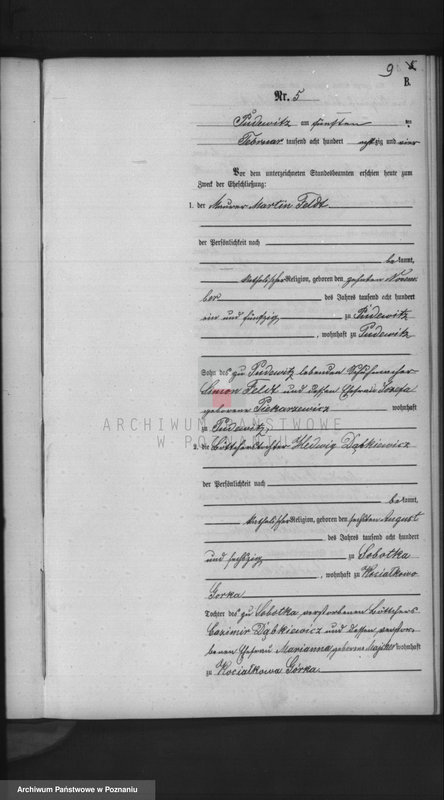 9
B.
Nr. 5
Pudewitz am fünften ten
Februar tausend acht hundert achtzig und vier
Vor dem unterzeichneten Standesbeamten erschien heute zum
Zweck der Eheschließung:
1. der Maurer Martin Feldt
der Persönlichkeit nach
bekannt,
katholischer Religion, geboren den zehnten Novem
ber des Jahres tausend acht hundert
ein und fünfzig, zu Pudewitz
, wohnhaft zu Pudewitz
Sohn des zu Pudewitz lebenden Schuhmacher
Simon Feldt und dessen Ehefrau Josefa
geborene Piekarzewicz wohnhaft
zu Pudewitz,
ARCHIWUM PAŃSTWOWE
W POZNANIU
2. die Böttcherstochter Hedwig Dąbkiewicz
der Persönlichkeit nach
bekannt,
katholischer Religion, geboren den sechsten August
des Jahres tausend acht hundert
und sechszig, zu Sobotka
, wohnhaft zu Kocialkowo
Gorka
Tochter des zu Sobotka verstorbenen Böttchers
Casimir Dąbkiewicz und dessen verstor-
benen Ehefrau Marianna, geborene wohnhaft
zu Kocialkowa Górka
Archiwum Państwowe w Poznaniu